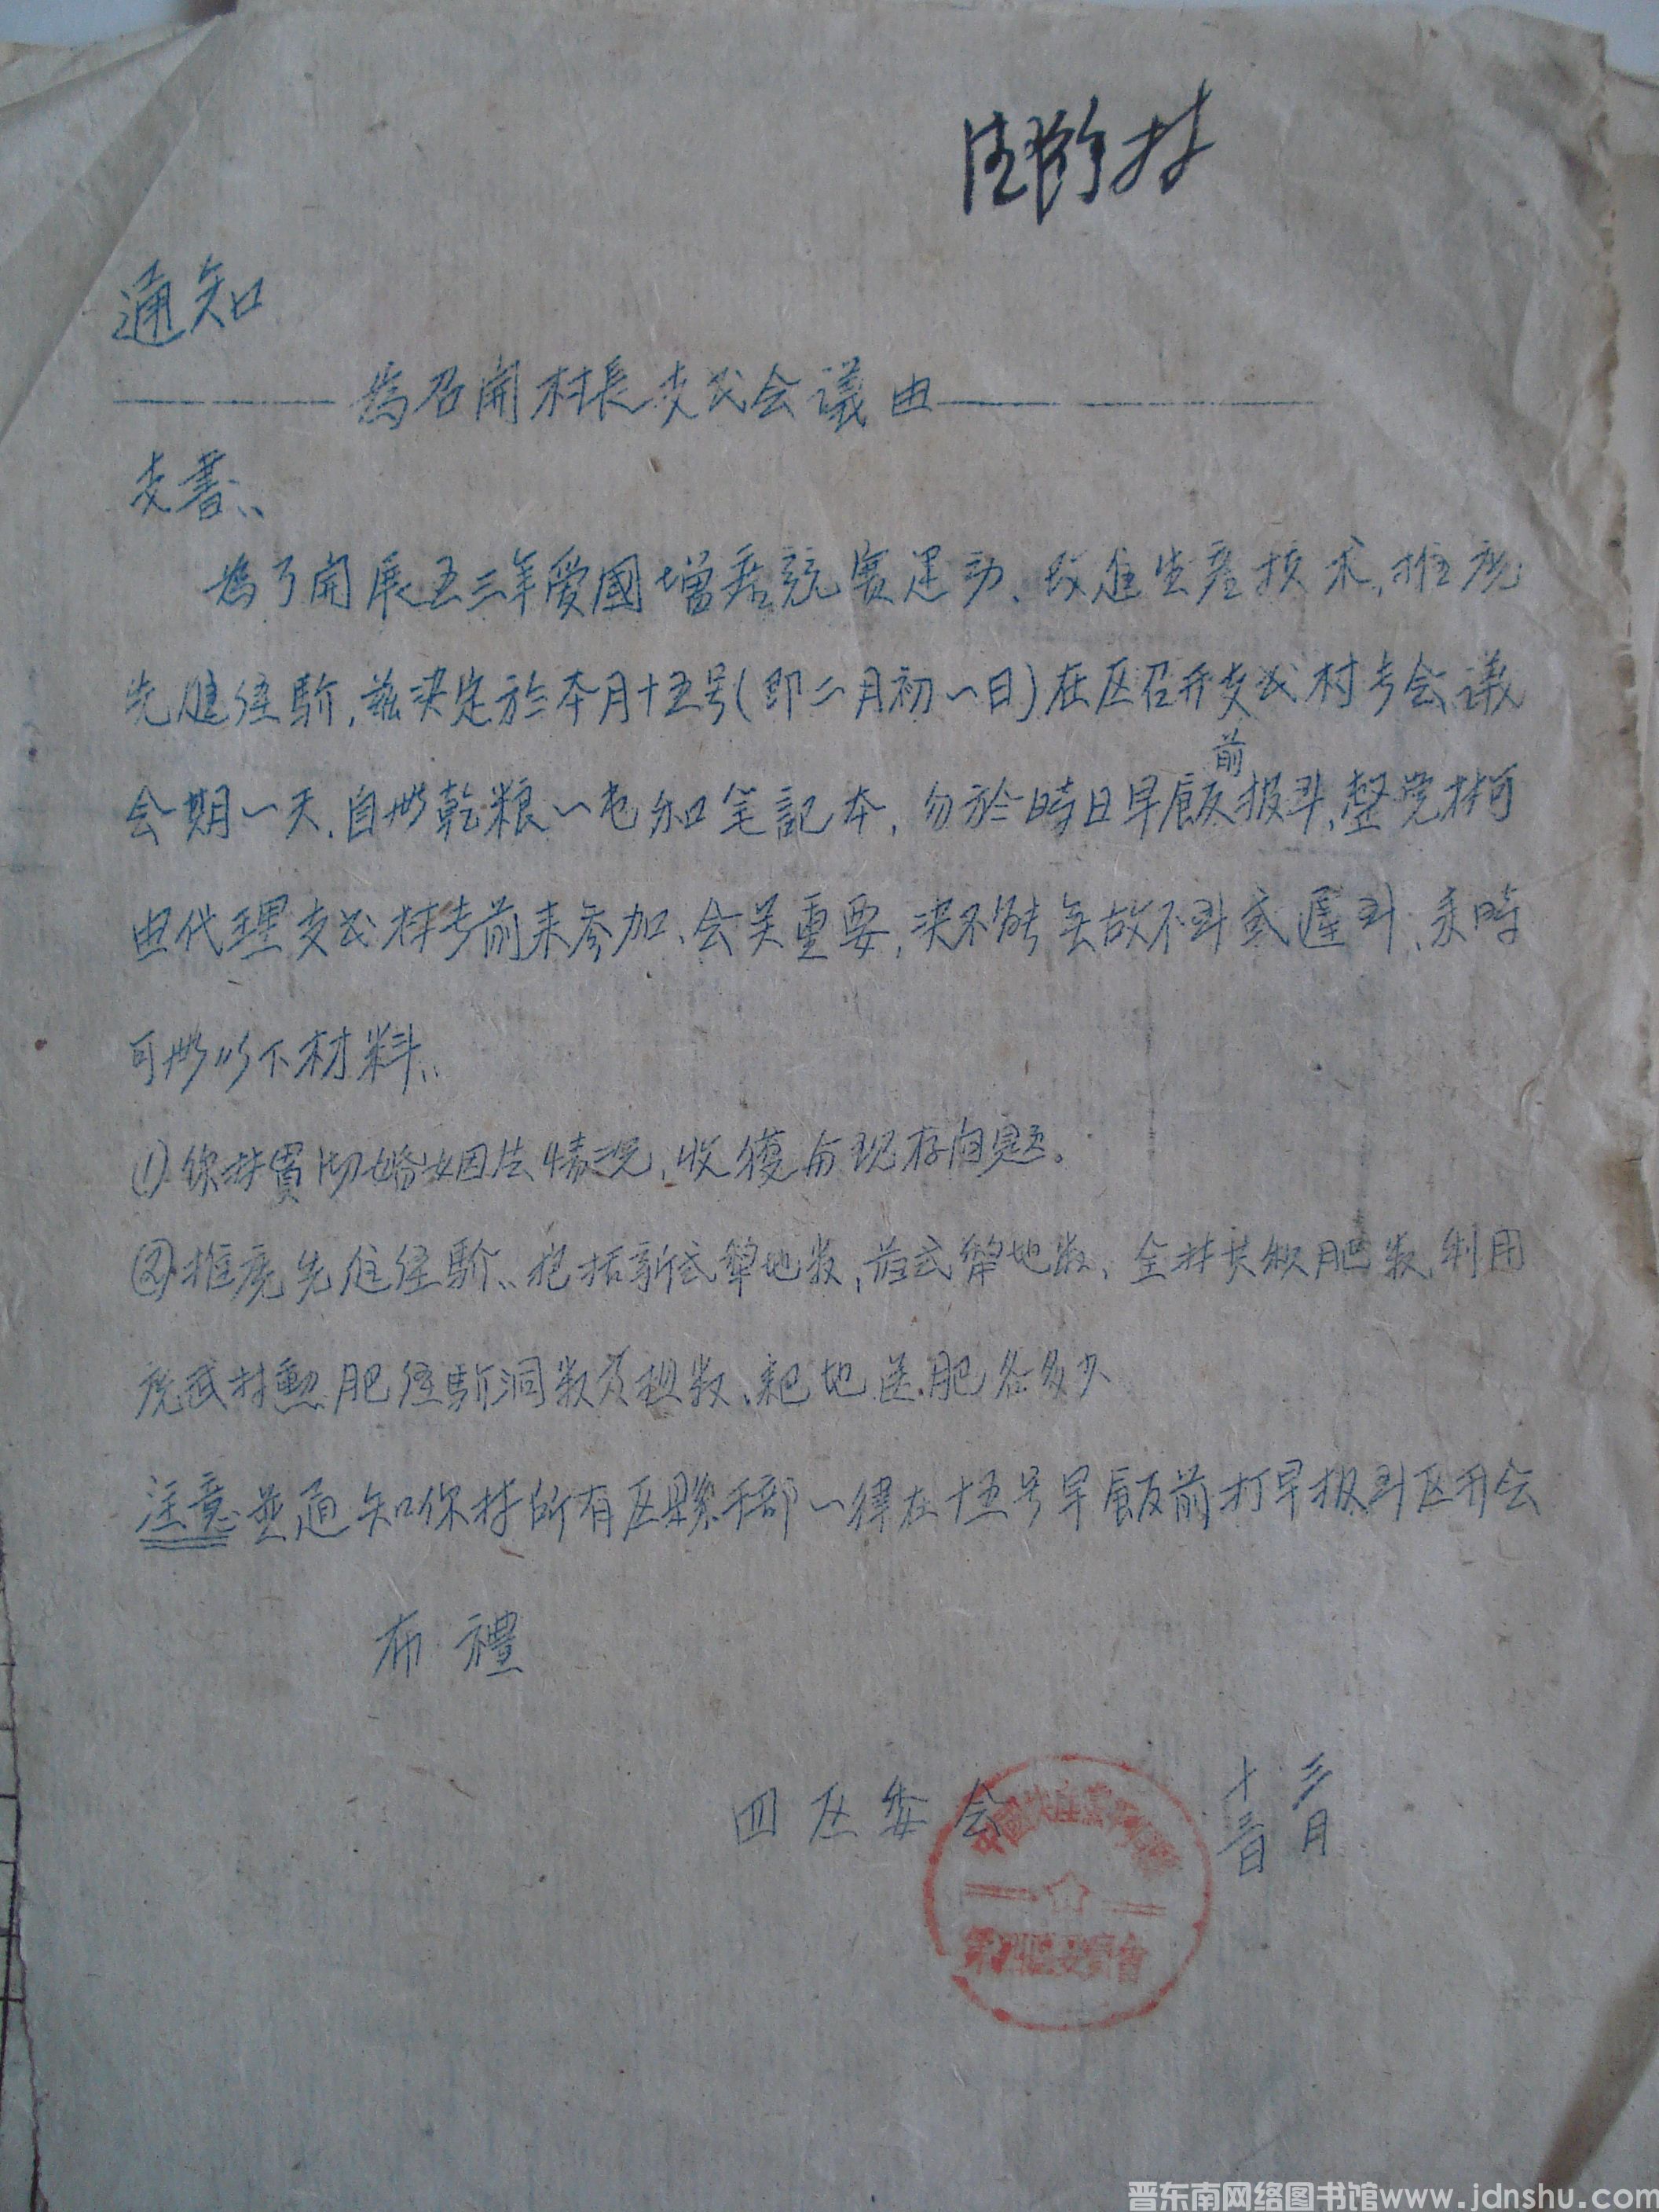 通知
為召開村長支书会議由
支書:
為了開展五三年愛國增產競賽運动、改進生產技术,推廣
先進經驗,兹決定於本月十五号(即二月初一日)在区召开支书村长会議
会期一天,自带乾粮一包和笔記本,務於時日早飯前报到,整党村可
由代理支书村长前来參加、会关重要,決不能無故不到或遲到、来時
可带以下材料:
(1)你村貫彻婚姻法情况,收穫与现存问题。
(2)推廣先進經驗:包括新式犁地数,旧式犁地数,全村共积肥数,利用
村熏肥經驗洞数及担数、耙地送肥各多少
注意並通知你村所有区縣干部一律在十五号早飯前打早报到区开会
布禮
四区委会
三月
十三日
中國共產黨
第四區委員會
晋东南网络图书馆www.jdnshu.com